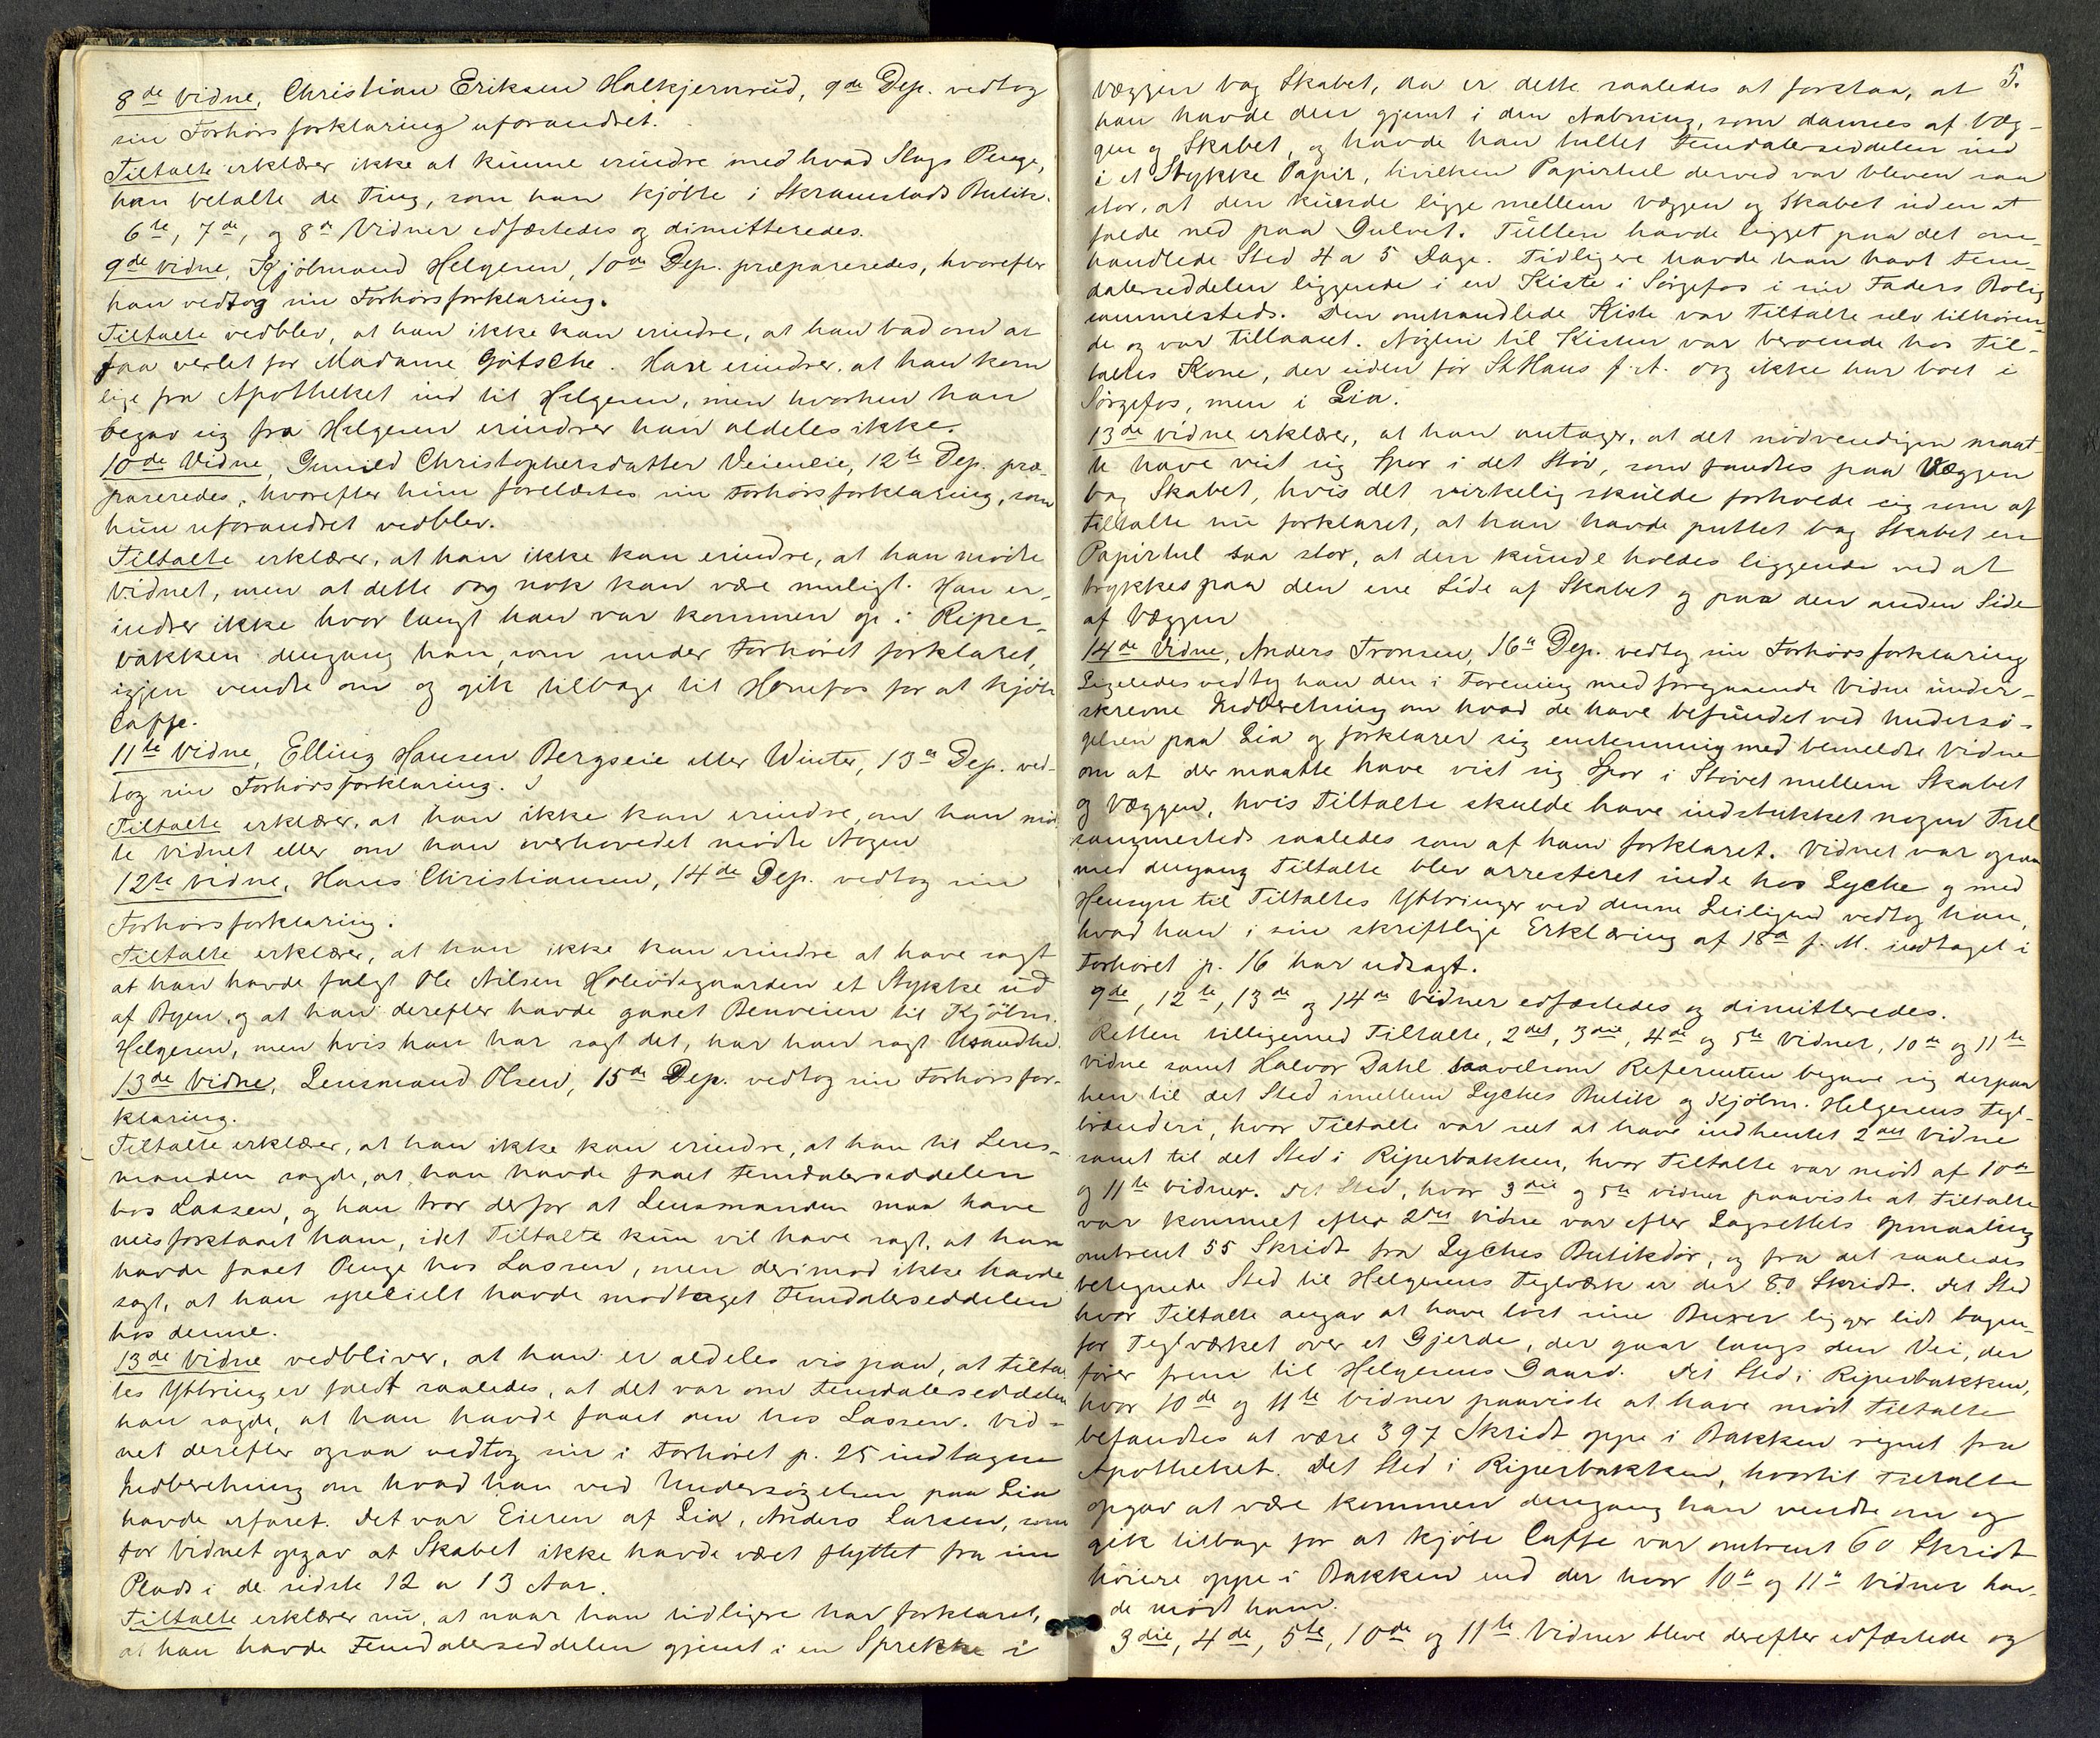 8de Vidne, Christian Eriksen Halkjernrud, 9de Dep. vedtog
sin Forhørsforklaring uforandret.
Tiltalte erklærer ikke at kunne erindre med hvad Slags Penge,
han betalte de Ting, som han kjøbte i Skramstads Butik.
6te, 7de, og 8de Vidner edfæstedes og dimitteredes.
9de Vidne, Kjøbmand Helgesen, 10de Dep. præpareredes, hvorefter
han vedtog sin Forhørsforklaring.
Tiltalte vedblev, at han ikke kan erindre, at han bad om at
faa vexlet for Madame Gøtsche. Han erindrer, at han kom
lige fra Apotheket ind til Helgesen, men hvorhen han
begav sig fra Helgesen erindrer han aldeles ikke.
10de Vidne, Gunild Christophersdatter Veieneie, 12te Dep. præ-
pareredes, hvorefter hun forelæstes sin Forhørsforklaring, som
hun uforandret vedblev.
Tiltalte erklærer, at han ikke kan erindre, at han mødte
Vidnet, men at dette dog nok kan være muligt. Han er-
indrer ikke hvor langt han var kommen op i Riper-
bakken dengang han, som under Forhøret forklaret,
igjen vendte om og gik tilbage til Hønefos for at kjøbe
Caffe.
11te Vidne, Elling Hansen Bergseie eller Winter, 13de Dep. ved-
tog sin Forhørsforklaring.
Tiltalte erklærer, at han ikke kan erindre, om han mød-
te Vidnet eller om han overhovedet mødte Nogen
12te Vidne, Hans Christiansen, 14de Dep. vedtog sin
Forhørsforklaring.
Tiltalte erklærer, at han ikke kan erindre at have sagt
at han havde fulgt Ole Nilsen et Stykke ud
af Byen, og at han derefter havde gaaet Benveien til Kjøbm.
Helgesen, men hvis han har sagt det, har han sagt Usandhed.
13de Vidne, Lensmand Olsen, 15de Dep. vedtog sin Forhørsfor-
klaring.
Tiltalte erklærer, at han ikke kan erindre, at han til Lens-
manden sagde, at han havde faaet Femdalerseddelen
hos Lassen, og han tror derfor at Lensmanden maa have
misforstaaet ham, idet Tiltalte kun vil have sagt, at han
havde faaet Penge hos Lassen, men derimod ikke havde
sagt, at han specielt havde modtaget Femdalerseddelen
hos denne.
13de Vidne vedbliver, at han er aldeles vis paa, at Tiltal-
tes Yttringer faldt saaledes, at det var om Femdalerseddelen
han sagde, at han havde faaet den hos Lassen. Vid-
net derefter ogsaa vedtog sin i Forhøret p. 25 indtagne
Indberetning om hvad han ved Undersøgelsen paa Lia
havde erfaret. Det var Eieren af Lia, Anders Larsen, som
for Vidnet opgav at Skabet ikke havde været flyttet fra sin
Plads i de sidste 12 a 13 Aar.
Tiltalte erklærer nu, at naar han tidligere har forklaret,
at han havde Femdalerseddelen gjemt i en Sprekke i
5.
Væggen bag Skabet, da er dette saaledes at forstaa, at
han havde den gjemt i den Aabning, som dannes af Væg-
gen og Skabet, og havde han tullet Femdalerseddelen ind
i et Stykke Papir, hvilken Papirtul derved var bleven saa
stor, at den kunde ligge mellem Væggen og Skabet uden at
falde ned paa Gulvet. Tullen havde ligget paa det om-
handlede Sted 4 a 5 Dage. Tidligere havde han havt Fem-
dalerseddelen liggende i en Kiste i Sørgefos i sin Faders Bolig
sammesteds. Den omhandlede Kiste var Tiltalte selv tilhøren-
de og var tillaaset. Nøglen til Kisten var beroende hos Til-
taltes Kone, der siden før St Hans f. A. dog ikke har boet i
Sørgefos, men i Lia.
13de Vidne erklærer, at han antager, at det nødvendigen maat-
te have vist sig Spor i det Støv, som fandtes paa Væggen
bag Skabet, hvis det virkelig skulde forholde sig som af
Tiltalte nu forklaret, at han havde puttet bag Skabet en
Papirtul saa stor, at den kunde holdes liggende ved at
trykkes paa den ene Side af Skabet og paa den anden Side
af Væggen
14de Vidne, Anders Tronsen, 16de Dep. vedtog sin Forhørsforklaring
Ligeledes vedtog han den i Forening med foregaaende Vidne under-
skrevne Indberetning om hvad de have befundet ved Undersø-
gelsen paa Lia og forklarer sig enstemmig med bemeldte Vidne
om at der maatte have vist sig Spor i Støvet mellem Skabet
og Væggen, hvis Tiltalte skulde have indstukket nogen Tul
sammesteds saaledes som af ham forklaret. Vidnet var ogsaa
med dengang Tiltalte blev arresteret inde hos Lyche og med
Hensyn til Tiltaltes Yttringer ved denne Leilighed vedtog han,
hvad han i sin skriftlige Erklæring af 18de f. M. indtaget i
Forhøret p. 16 har udsagt.
9de, 12te, 13de og 14de Vidner edfæstedes og dimitteredes.
Retten tilligemed Tiltalte, 2det, 3die, 4de og 5te Vidner, 10de og 11te
Vidne samt Halvor Dahl saavelsom Referenten begave sig derpaa
hen til det Sted imellem Lyches Butik og Kjøbm. Helgesens Tegl-
brænderi, hvor Tiltalte var seet at have indhentet 2det Vidne
samt til det Sted i Riperbakken, hvor Tiltalte var mødt af 10de
og 11te Vidner. Det Sted, hvor 3die og 5te Vidner paaviste at Tiltalte
var kommet efter 2det Vidne var efter Lagrettets Opmaaling
omtrent 55 Skridt fra Lyches Butikdør, og fra det saaledes
betegnede Sted til Helgesens Teglværk er der 80 Skridt. Det Sted
hvor Tiltalte angav at have løst sine Buxer ligger lidt bagen-
for Teglværket over et Gjerde, der gaar langs den Vei, der
fører frem til Helgesens Gaard. Det Sted i Riperbakken,
hvor 10de og 11te Vidner paaviste at have mødt Tiltalte
befandtes at være 397 Skridt oppe i Bakken regnet fra
Apotheket. Det Sted i Riperbakken, hvortil Tiltalte
opgav at være kommen dengang han vendte om og
gik tilbage for at kjøbe Caffe var omtrent 60 Skridt
høiere oppe i Bakken end der hvor 10de og 11te Vidner hav-
de mødt ham.
3die, 4de, 5te, 10de og 11te Vidner bleve derefter edfæstede og